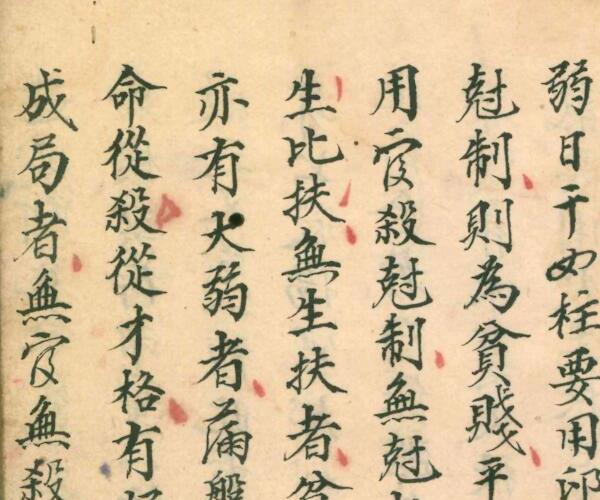 弱日干四柱要用印
尅制則為貧賤平
用官殺尅制無尅
生比扶無生扶者貧
亦有大弱者滿盤
命從殺從才格有
成局者無官無殺